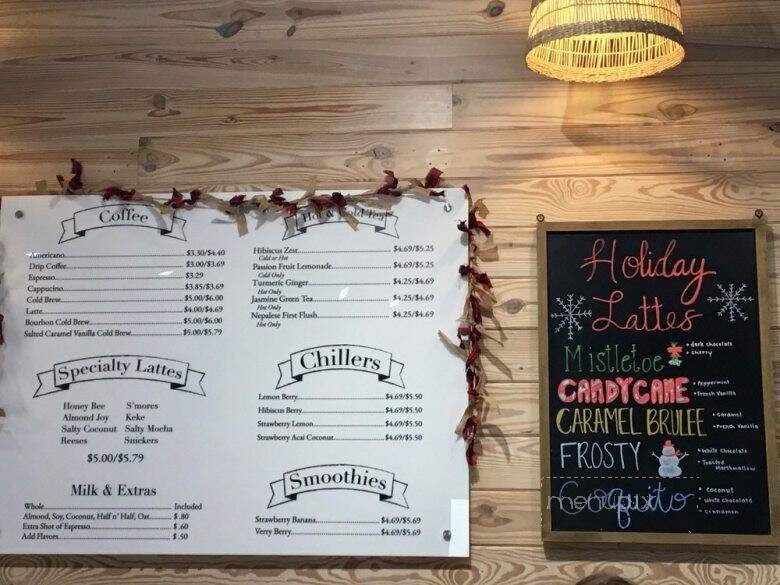 Coffee
Americano $3.30/$4.40
Drip Coffee $3.00/$3.69
Espresso $3.29
Cappucino $3.85/$3.69
Cold Brew $5.00/$6.00
Latte $4.00/$4.69
Bourbon Cold Brew $5.00/$6.00
Salted Caramel Vanilla Cold Brew $5.00/$5.79
Specialty Lattes
Honey Bee S'mores
Almond Joy Keke
Salty Coconut Salty Mocha
Reeses Snickers
$5.00/$5.79
Milk & Extras
Whole Included
Almond, Soy, Coconut, Half n' Half, Oat $.80
Extra Shot of Espresso $.60
Add Flavors $.50
Hot & Cold Tea
Hibiscus Zest $4.69/$5.25
Cold or Hot
Passion Fruit Lemonade $4.69/$5.25
Cold Only
Turmeric Ginger $4.25/$4.69
Hot Only
Jasmine Green Tea $4.25/$4.69
Hot Only
Nepalese First Flush $4.25/$4.69
Hot Only
Chillers
Lemon Berry $4.69/$5.50
Hibiscus Berry $4.69/$5.50
Strawberry Lemon $4.69/$5.50
Strawberry Acai Coconut $4.69/$5.50
Smoothies
Strawberry Banana $4.69/$5.69
Verry Berry $4.69/$5.69
Holiday
Lattes
Mistletoe • dark chocolate
• cherry
CANDYCANE • Peppermint
• French Vanilla
CARAMEL BRULEE • Caramel
• French Vanilla
FROSTY • White Chocolate
• Toasted
Marshmallow
Coquito • Coconut
• white chocolate
• cinnamon